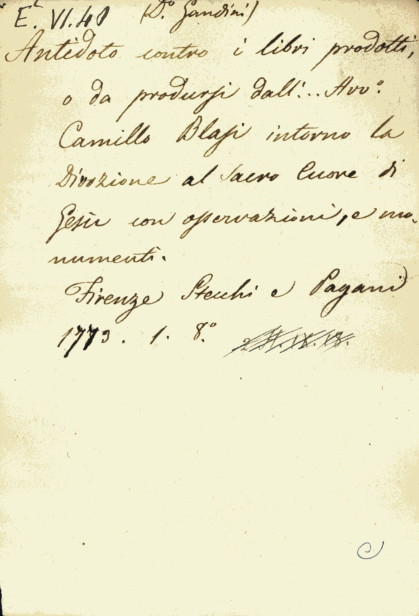 E. VI. 48 (D.º Gandini)
Antidoto contro i libri prodotti,
o da prodursi dall'... Avv.º
Camillo Blasi intorno la
Divozione al Sacro Cuore di
Gesù con osservazioni, e mo-
numenti.
Firenze Stecchi e Pagani
1773. 1. 8.º